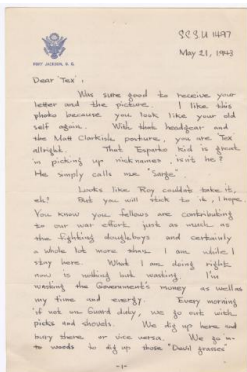 S.C.S.U 1497
FORT JACKSON, S. C.
May 21, 1943
Dear "Tex",
Was sure good to receive your
letter and the picture. I like this
photo because you look like your old
self again. With that headgear and
the Mott Clarkish posture, you are Tex
allright. That Esparto kid is great
in picking up nicknames, isn't he?
He simply calls me "Sarge".
Looks like Roy couldn't take it,
eh? But you will stick to it, I hope.
You know you fellows are contributing
to our war effort just as much as
the fighting doughboys and certainly
a whole lot more than I am while I
stay here. What I am doing right
now is nothing but wasting. I'm
wasting the Government's money as well as
my time and energy. Every morning
if not on guard duty, we go out with
picks and shovels. We dig up here and
bury there or vice versa. We go in
to woods to dig up those "Devil grasses
-1-